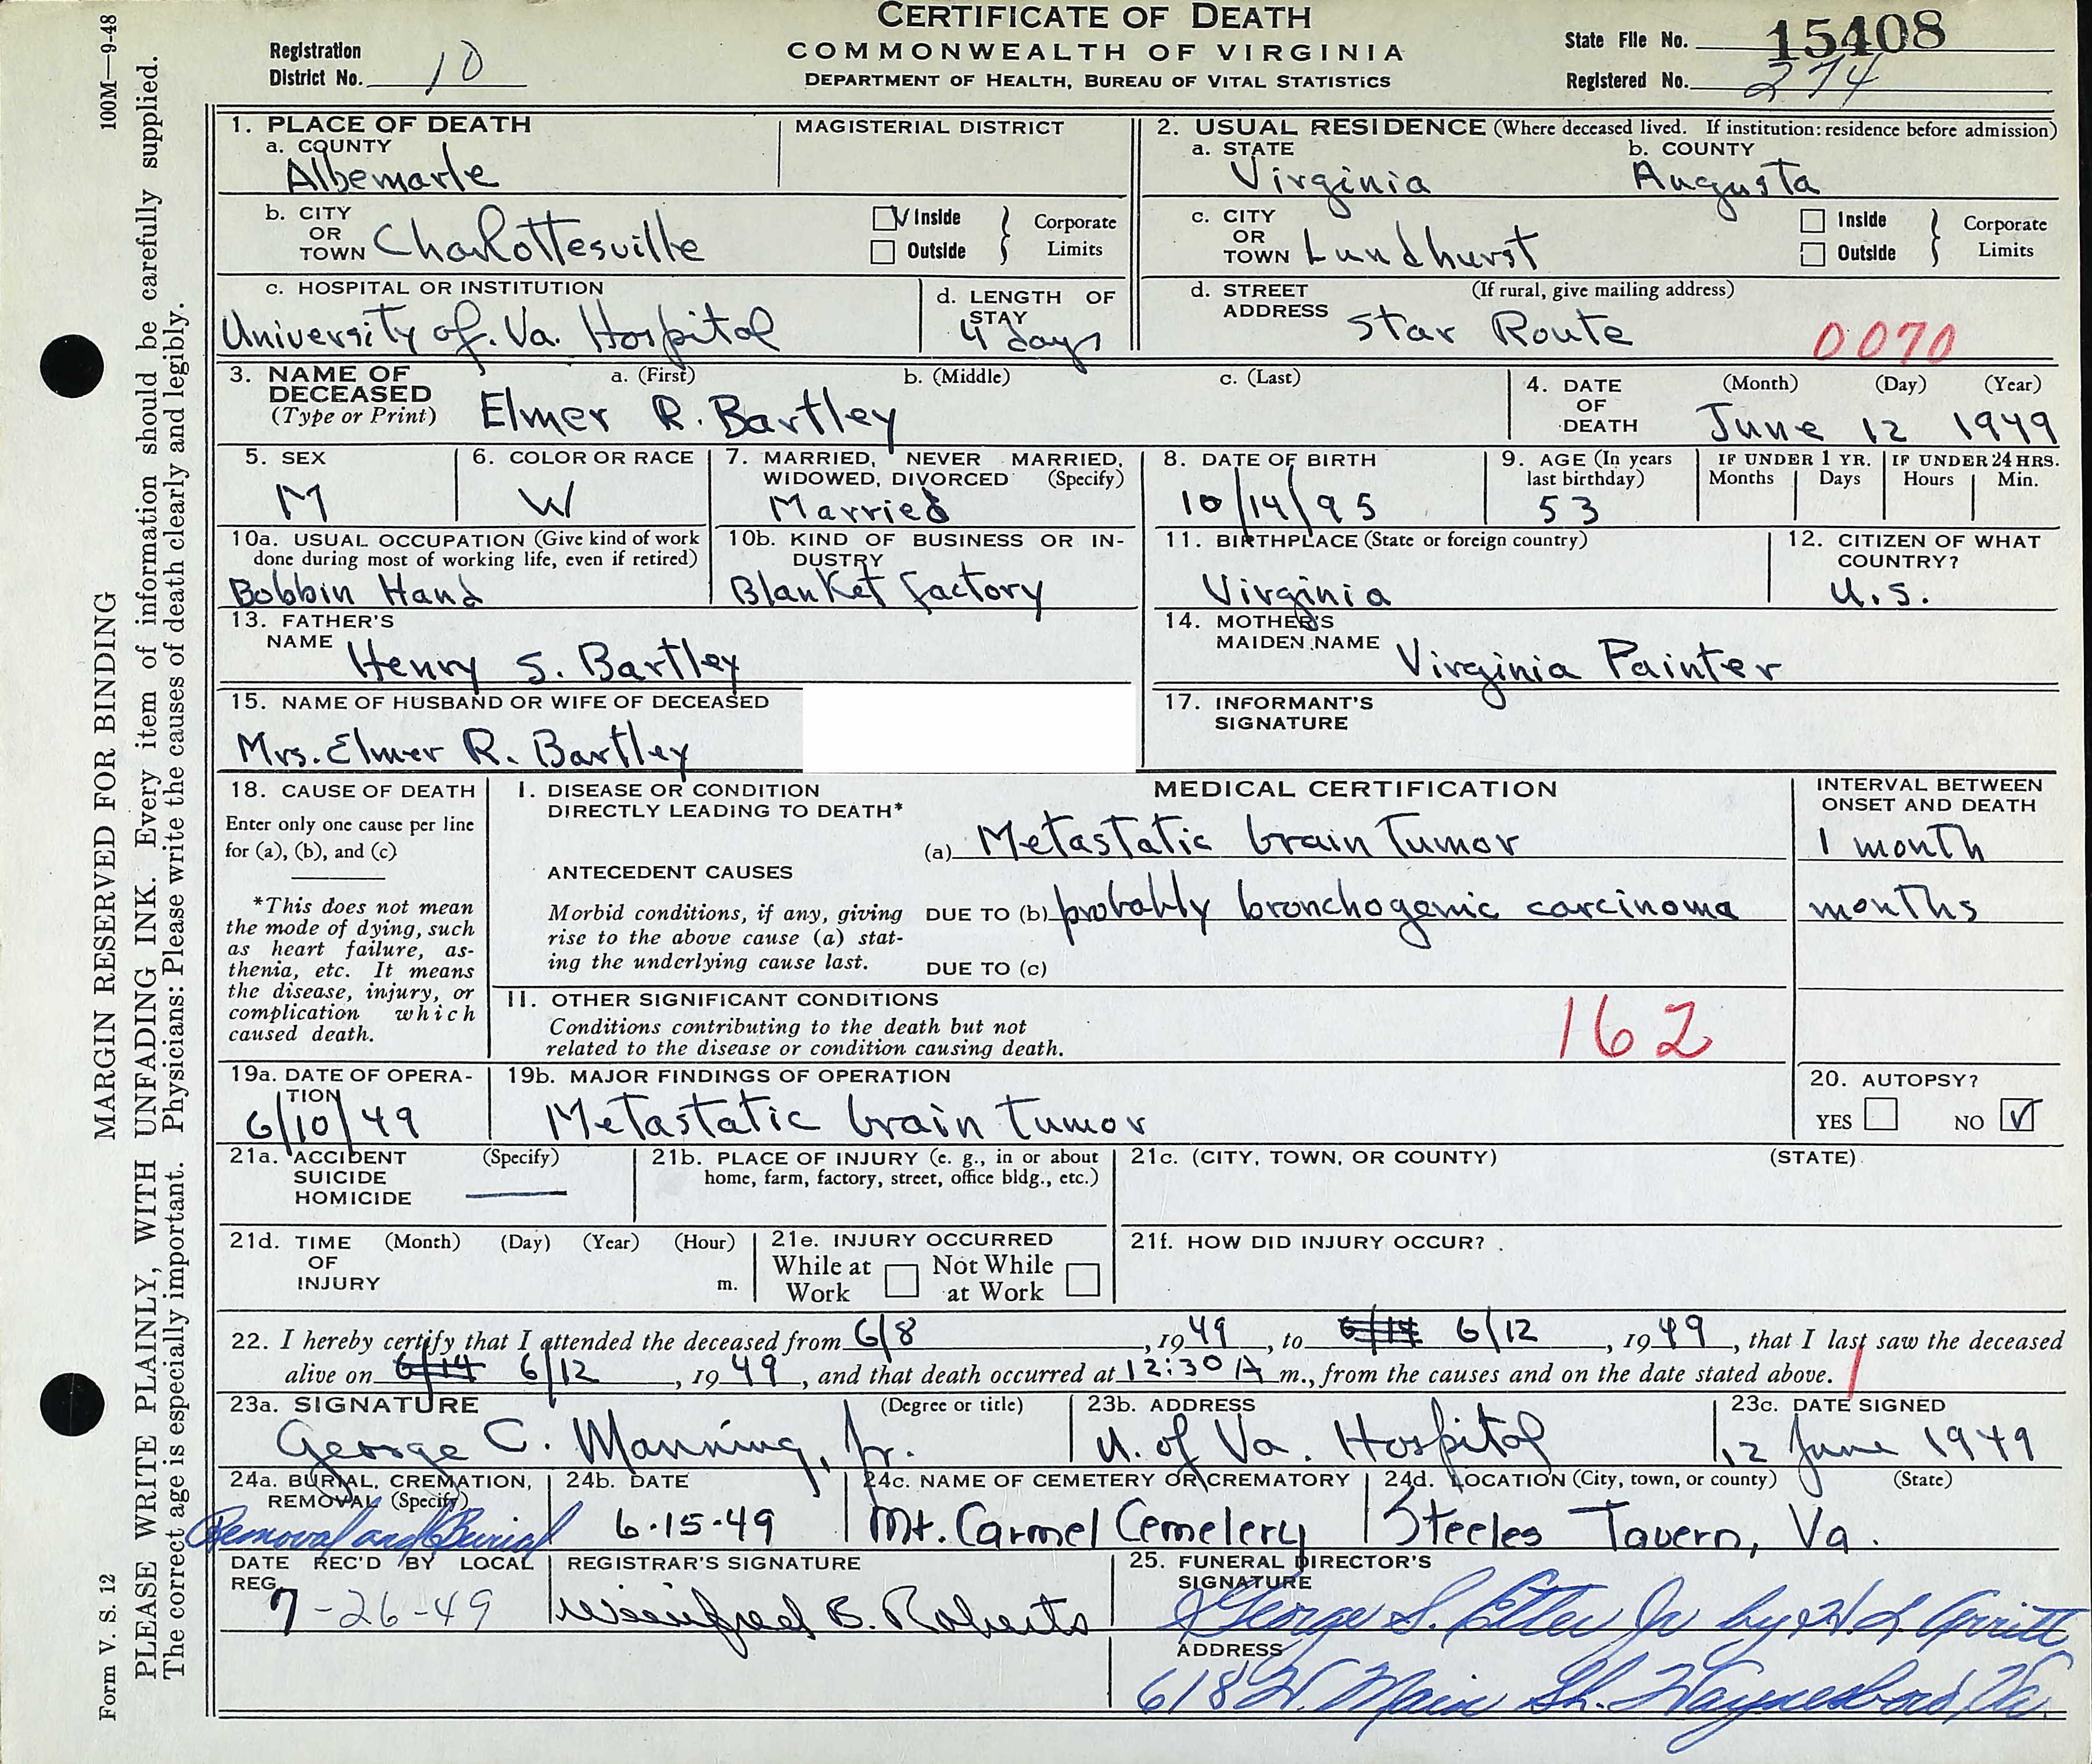 CERTIFICATE OF DEATH
COMMONWEALTH OF VIRGINIA
DEPARTMENT OF HEALTH, BUREAU OF VITAL STATISTICS
Registration
District No. 10
State File No. 15408
Registered No. 274
100M—9-48
MARGIN RESERVED FOR BINDING
PLEASE WRITE PLAINLY, WITH UNFADING INK. Every item of information should be carefully supplied.
The correct age is especially important. Physicians: Please write the causes of death clearly and legibly.
Form V. S. 12
1. PLACE OF DEATH
a. COUNTY
Albemarle
MAGISTERIAL DISTRICT
2. USUAL RESIDENCE (Where deceased lived. If institution: residence before admission)
a. STATE b. COUNTY
Virginia Augusta
b. CITY OR TOWN Charlottesville
Inside
Outside
Corporate Limits
c. CITY OR TOWN Lundhurst
Inside
Outside
Corporate Limits
c. HOSPITAL OR INSTITUTION
University of. Va. Hospital
d. LENGTH OF STAY
4 days
d. STREET ADDRESS (If rural, give mailing address)
Star Route
0070
3. NAME OF DECEASED (Type or Print) a. (First) b. (Middle) c. (Last)
Elmer R. Bartley
4. DATE OF DEATH (Month) (Day) (Year)
June 12 1949
5. SEX
M
6. COLOR OR RACE
W
7. MARRIED, NEVER MARRIED, WIDOWED, DIVORCED (Specify)
Married
8. DATE OF BIRTH
10/14/95
9. AGE (In years last birthday)
53
IF UNDER 1 YR. IF UNDER 24 HRS.
Months Days Hours Min.
10a. USUAL OCCUPATION (Give kind of work done during most of working life, even if retired)
Bobbin Hand
10b. KIND OF BUSINESS OR INDUSTRY
Blanket factory
11. BIRTHPLACE (State or foreign country)
Virginia
12. CITIZEN OF WHAT COUNTRY?
U.S.
13. FATHER'S NAME
Henry S. Bartley
14. MOTHER'S MAIDEN NAME
Virginia Painter
15. NAME OF HUSBAND OR WIFE OF DECEASED
Mrs. Elmer R. Bartley
17. INFORMANT'S SIGNATURE
18. CAUSE OF DEATH
Enter only one cause per line for (a), (b), and (c)
*This does not mean
the mode of dying, such
as heart failure, as-
thenia, etc. It means
the disease, injury, or
complication which
caused death.
I. DISEASE OR CONDITION
DIRECTLY LEADING TO DEATH*
MEDICAL CERTIFICATION
INTERVAL BETWEEN ONSET AND DEATH
(a) Metastatic brain tumor 1 month
ANTECEDENT CAUSES
Morbid conditions, if any, giving
rise to the above cause (a) stat-
ing the underlying cause last.
DUE TO (b) probably bronchogenic carcinoma months
DUE TO (c)
II. OTHER SIGNIFICANT CONDITIONS
Conditions contributing to the death but not
related to the disease or condition causing death.
162
19a. DATE OF OPERATION
6/10/49
19b. MAJOR FINDINGS OF OPERATION
Metastatic brain tumor
20. AUTOPSY?
YES NO
21a. ACCIDENT
SUICIDE
HOMICIDE
(Specify)
21b. PLACE OF INJURY (e. g., in or about
home, farm, factory, street, office bldg., etc.)
21c. (CITY, TOWN, OR COUNTY) (STATE)
21d. TIME OF INJURY (Month) (Day) (Year) (Hour) m.
21e. INJURY OCCURRED
While at Work
Not While at Work
21f. HOW DID INJURY OCCUR?
22. I hereby certify that I attended the deceased from 6/8, 1949, to 6/14 6/12, 1949, that I last saw the deceased
alive on 6/14 6/12, 1949, and that death occurred at 12:30 A m., from the causes and on the date stated above.
23a. SIGNATURE (Degree or title)
George C. Manning, Jr.
23b. ADDRESS
U. of Va. Hospital
23c. DATE SIGNED
12 June 1949
24a. BURIAL, CREMATION, REMOVAL (Specify)
Removal and Burial
24b. DATE
6-15-49
24c. NAME OF CEMETERY OR CREMATORY
Mt. Carmel Cemetery
24d. LOCATION (City, town, or county) (State)
Steeles Tavern, Va.
DATE REC'D BY LOCAL REG.
7-26-49
REGISTRAR'S SIGNATURE
Winifred B. Roberts
25. FUNERAL DIRECTOR'S SIGNATURE
George S. Etter Jr by H L
ADDRESS
618 W. Main St. Waynesboro Va.